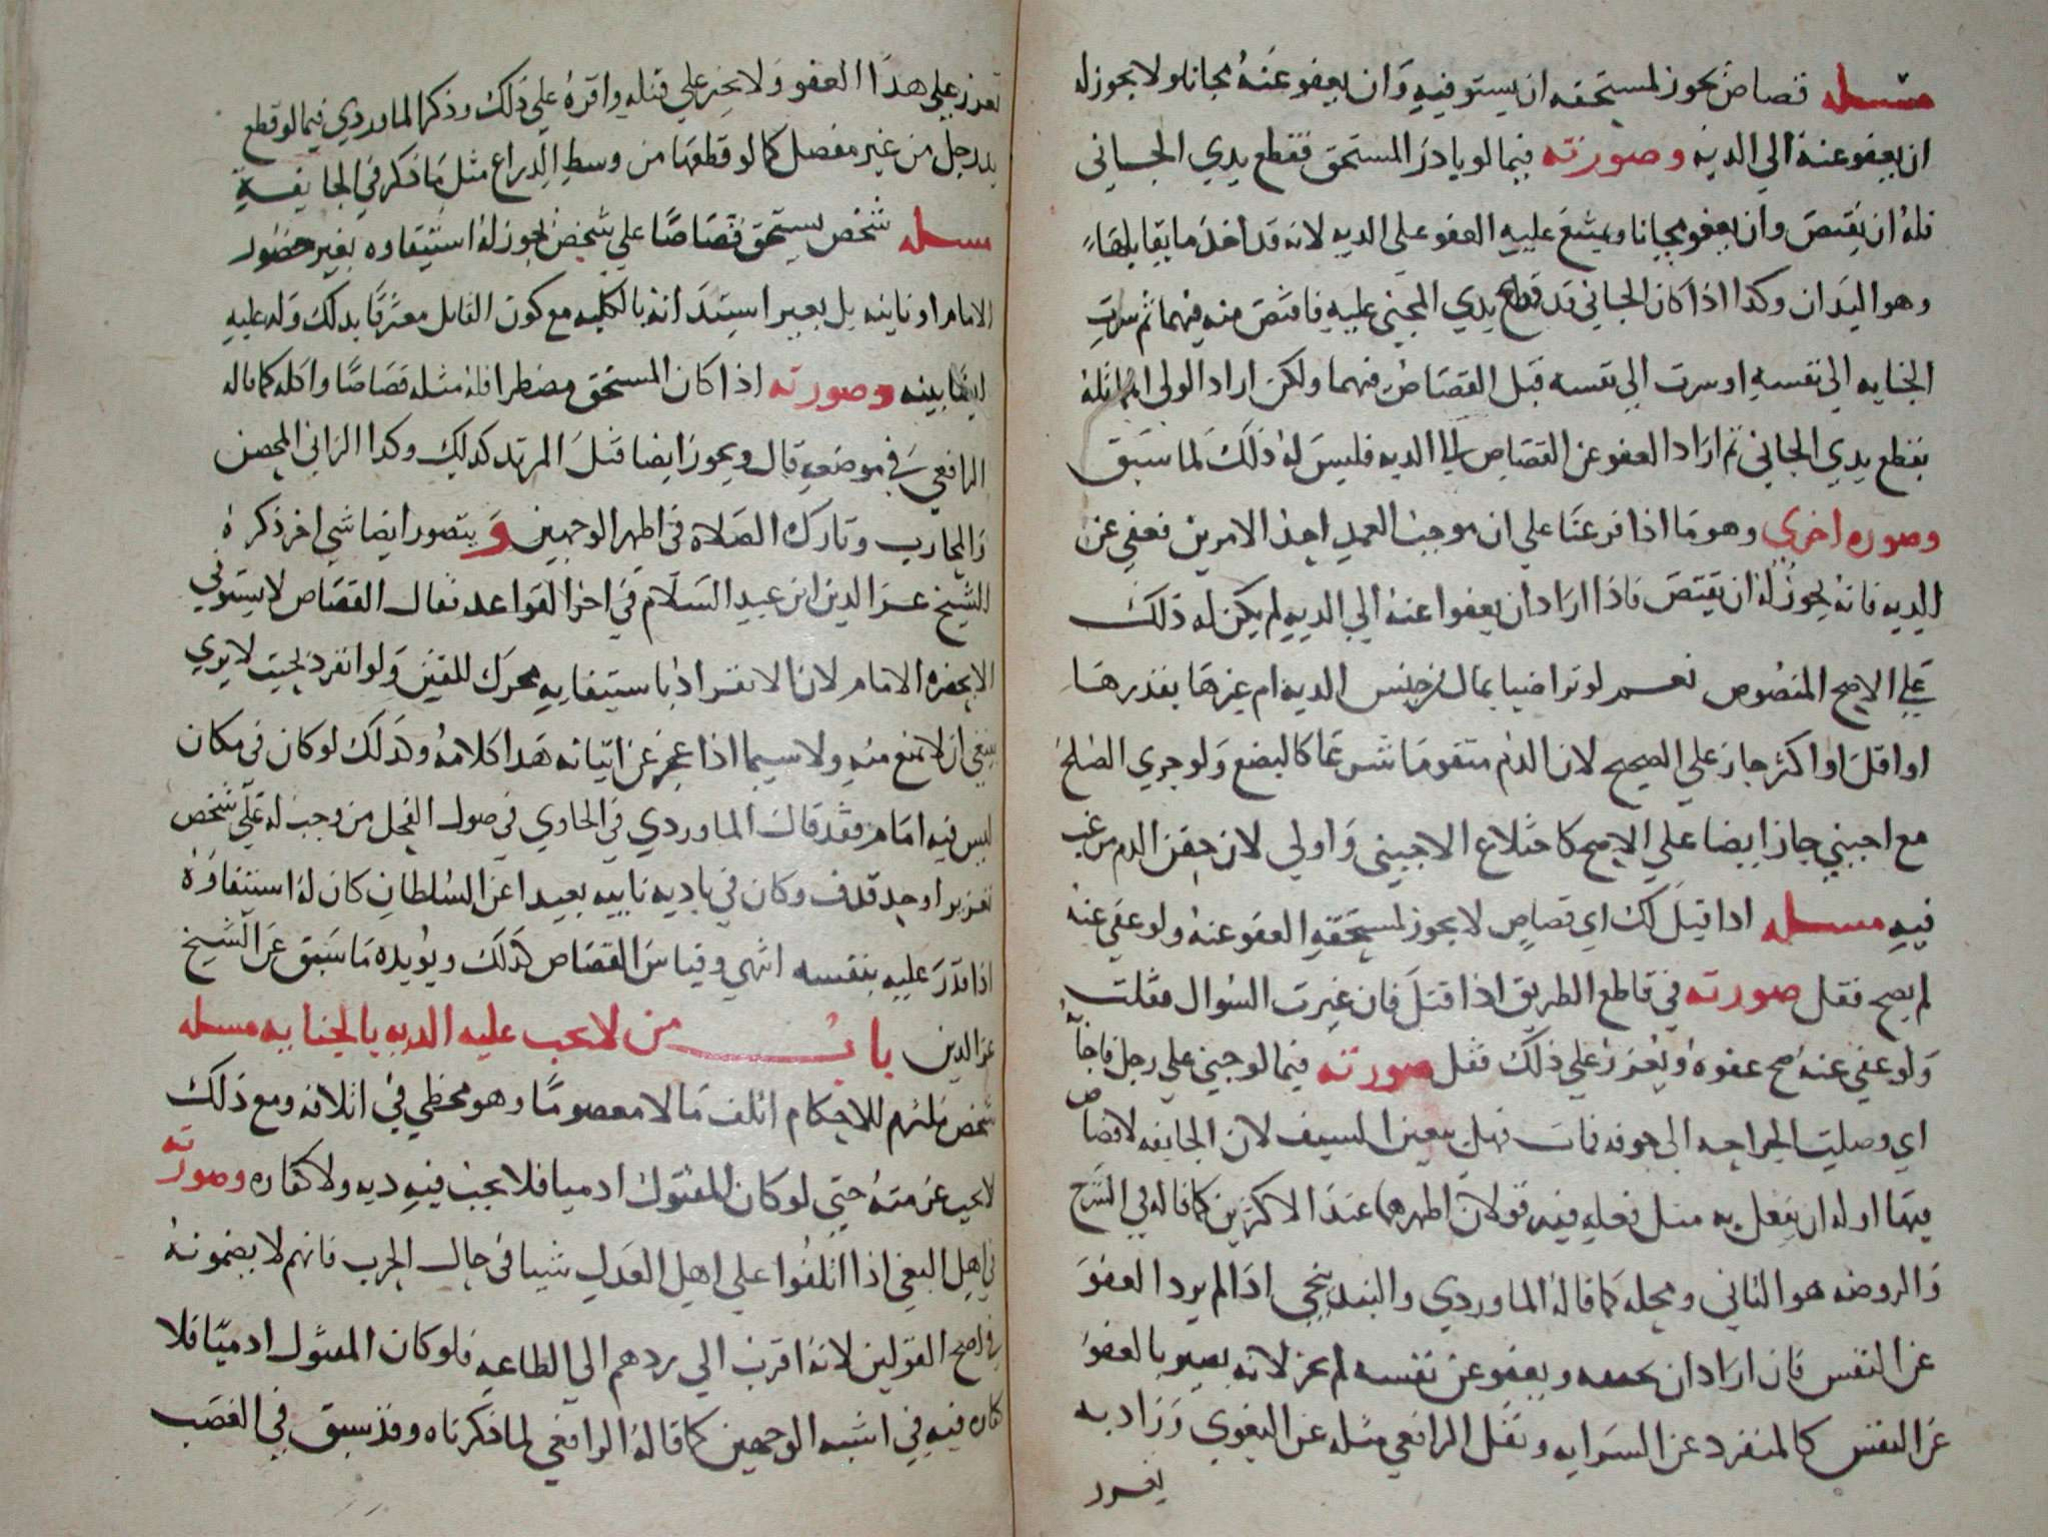 مسله قصاص يجوز لمستحقه ان يستوفيه وان يعفو عنه مجانا ولا يجوز له
ان يعفو عنه الي الديه وصورته فيما لو بادر المستحق فقطع يدي الجاني
فله ان يقتص وان يعفو مجانا ويمتنع عليه العفو على الديه لانه قد اخذ ما يقابلها
وهو اليدان وكذا اذا كان الجاني قد قطع يدي المجني عليه فاقتص منه فيهما ثم سرت
الجنايه الى نفسه او سرت الى نفسه قبل القصاص فيهما ولكن اراد الولي المماثله
بقطع يدي الجاني ثم اراد العفو عن القصاص الى الديه فليس له ذلك لما سبق
وصوره اخري وهو ما اذا فرعنا علي ان موجب العمد احد الامرين فعفي عن
الديه فانه يجوز له ان يقتص فاذا اراد ان يعفوا عنه الي الديه لم يكن له ذلك
علي الاصح المنصوص نعم لو تراضيا بمال من جنس الديه ام غيرها بقدرها
او اقل او اكثر جاز علي الصحيح لان الدم متقوما شرعا كالبضع ولو جري الصلح
مع اجنبي جاز ايضا علي الاصح كاختلاع الاجنبي واولي لان حقن الدم مرغب
فيه مسله اذا قيل لك اي قصاص لا يجوز لمستحقه العفو عنه ولو عفي عنه
لم يصح فقل صورته في قاطع الطريق اذا قتل فان غيرت السوال فقلت
ولو عفي عنه صح عفوه ويعزر علي ذلك فقل صورته فيما لو جني علي رجل فاجافه
اي وصلت الجراحه الى جوفه فمات فهل يتعين السيف لان الجايفه لا قصاص
فيها او له ان يفعل به مثل فعله فيه قولان اظهرهما عند الاكثرين كما قاله في الشرح
والروضه هو الثاني ومحله كما قاله الماوردي والبندنيجي اذا لم يرد العفو
عن النفس فان اراد ان يجيفه ويعفو عن نفسه لم يجز لانه يصير بالعفو
عن النفس كالمنفرد عن السرايه ونقل الرافعي مثله عن البغوي وزاد به
يعزر
يعزر علي هذا العفو ولا يجبر علي قتله واقره علي ذلك وذكر الماوردي فيما لو قطع
يد رجل من غير مفصل كما لو قطعها من وسط الذراع مثل ما ذكر في الجايفة
مسله شخص يستحق قصاصا علي شخص يجوز له استيفاوه بغير حضور
الامام او نايبه بل بغير استيذانه بالكليه مع كون القاتل معترفا بذلك وله عليه
ايضا بينه وصورته اذا كان المستحق مضطرا فله مثله قصاصا واكله كما قاله
الرافعي في موضعه قال ويجوز ايضا قتل المرتد كذلك وكذا الزاني المحصن
والمحارب وتارك الصلاة في اظهر الوجهين و يتصور ايضا شي اخر ذكره
الشيخ عز الدين ابن عبد السلام في اخر القواعد فقال القصاص لا يستوفي
الا بحضره الامام لان الانفراد باستيفايه محرك للفتن ولو انفرد بحيث لا يري
ينبغي ان لا يمنع منه ولا سيما اذا عجز عن اثباته هذا كلامه وكذلك لو كان في مكان
ليس فيه امام فقد قال الماوردي في الحاوي في صول الفحل من وجب له علي شخص
تعزير او حد قذف وكان في باديه نايبه بعيدا عن السلطان كان له استيفاوه
اذا قدر عليه بنفسه انتهي وقياس القصاص كذلك ويويده ما سبق عن الشيخ
عز الدين باب من لا تجب عليه الديه بالجنايه مسله
شخص ملتزم للاحكام اتلف مالا معصوما وهو مخطي في اتلافه ومع ذلك
لا يجب غرمته حتي لو كان المقتول ادميا فلا يجب فيه ديه ولا كفاره وصورته
في اهل البغي اذا اتلفوا علي اهل العدل شيا في حال الحرب فانهم لا يضمونه
في اصح القولين لانه اقرب الي ردهم الي الطاعه فلو كان المقتول ادميا فلا
كفاره فيه في اشبه الوجهين كما قاله الرافعي لما ذكرناه وقد سبق في الغصب